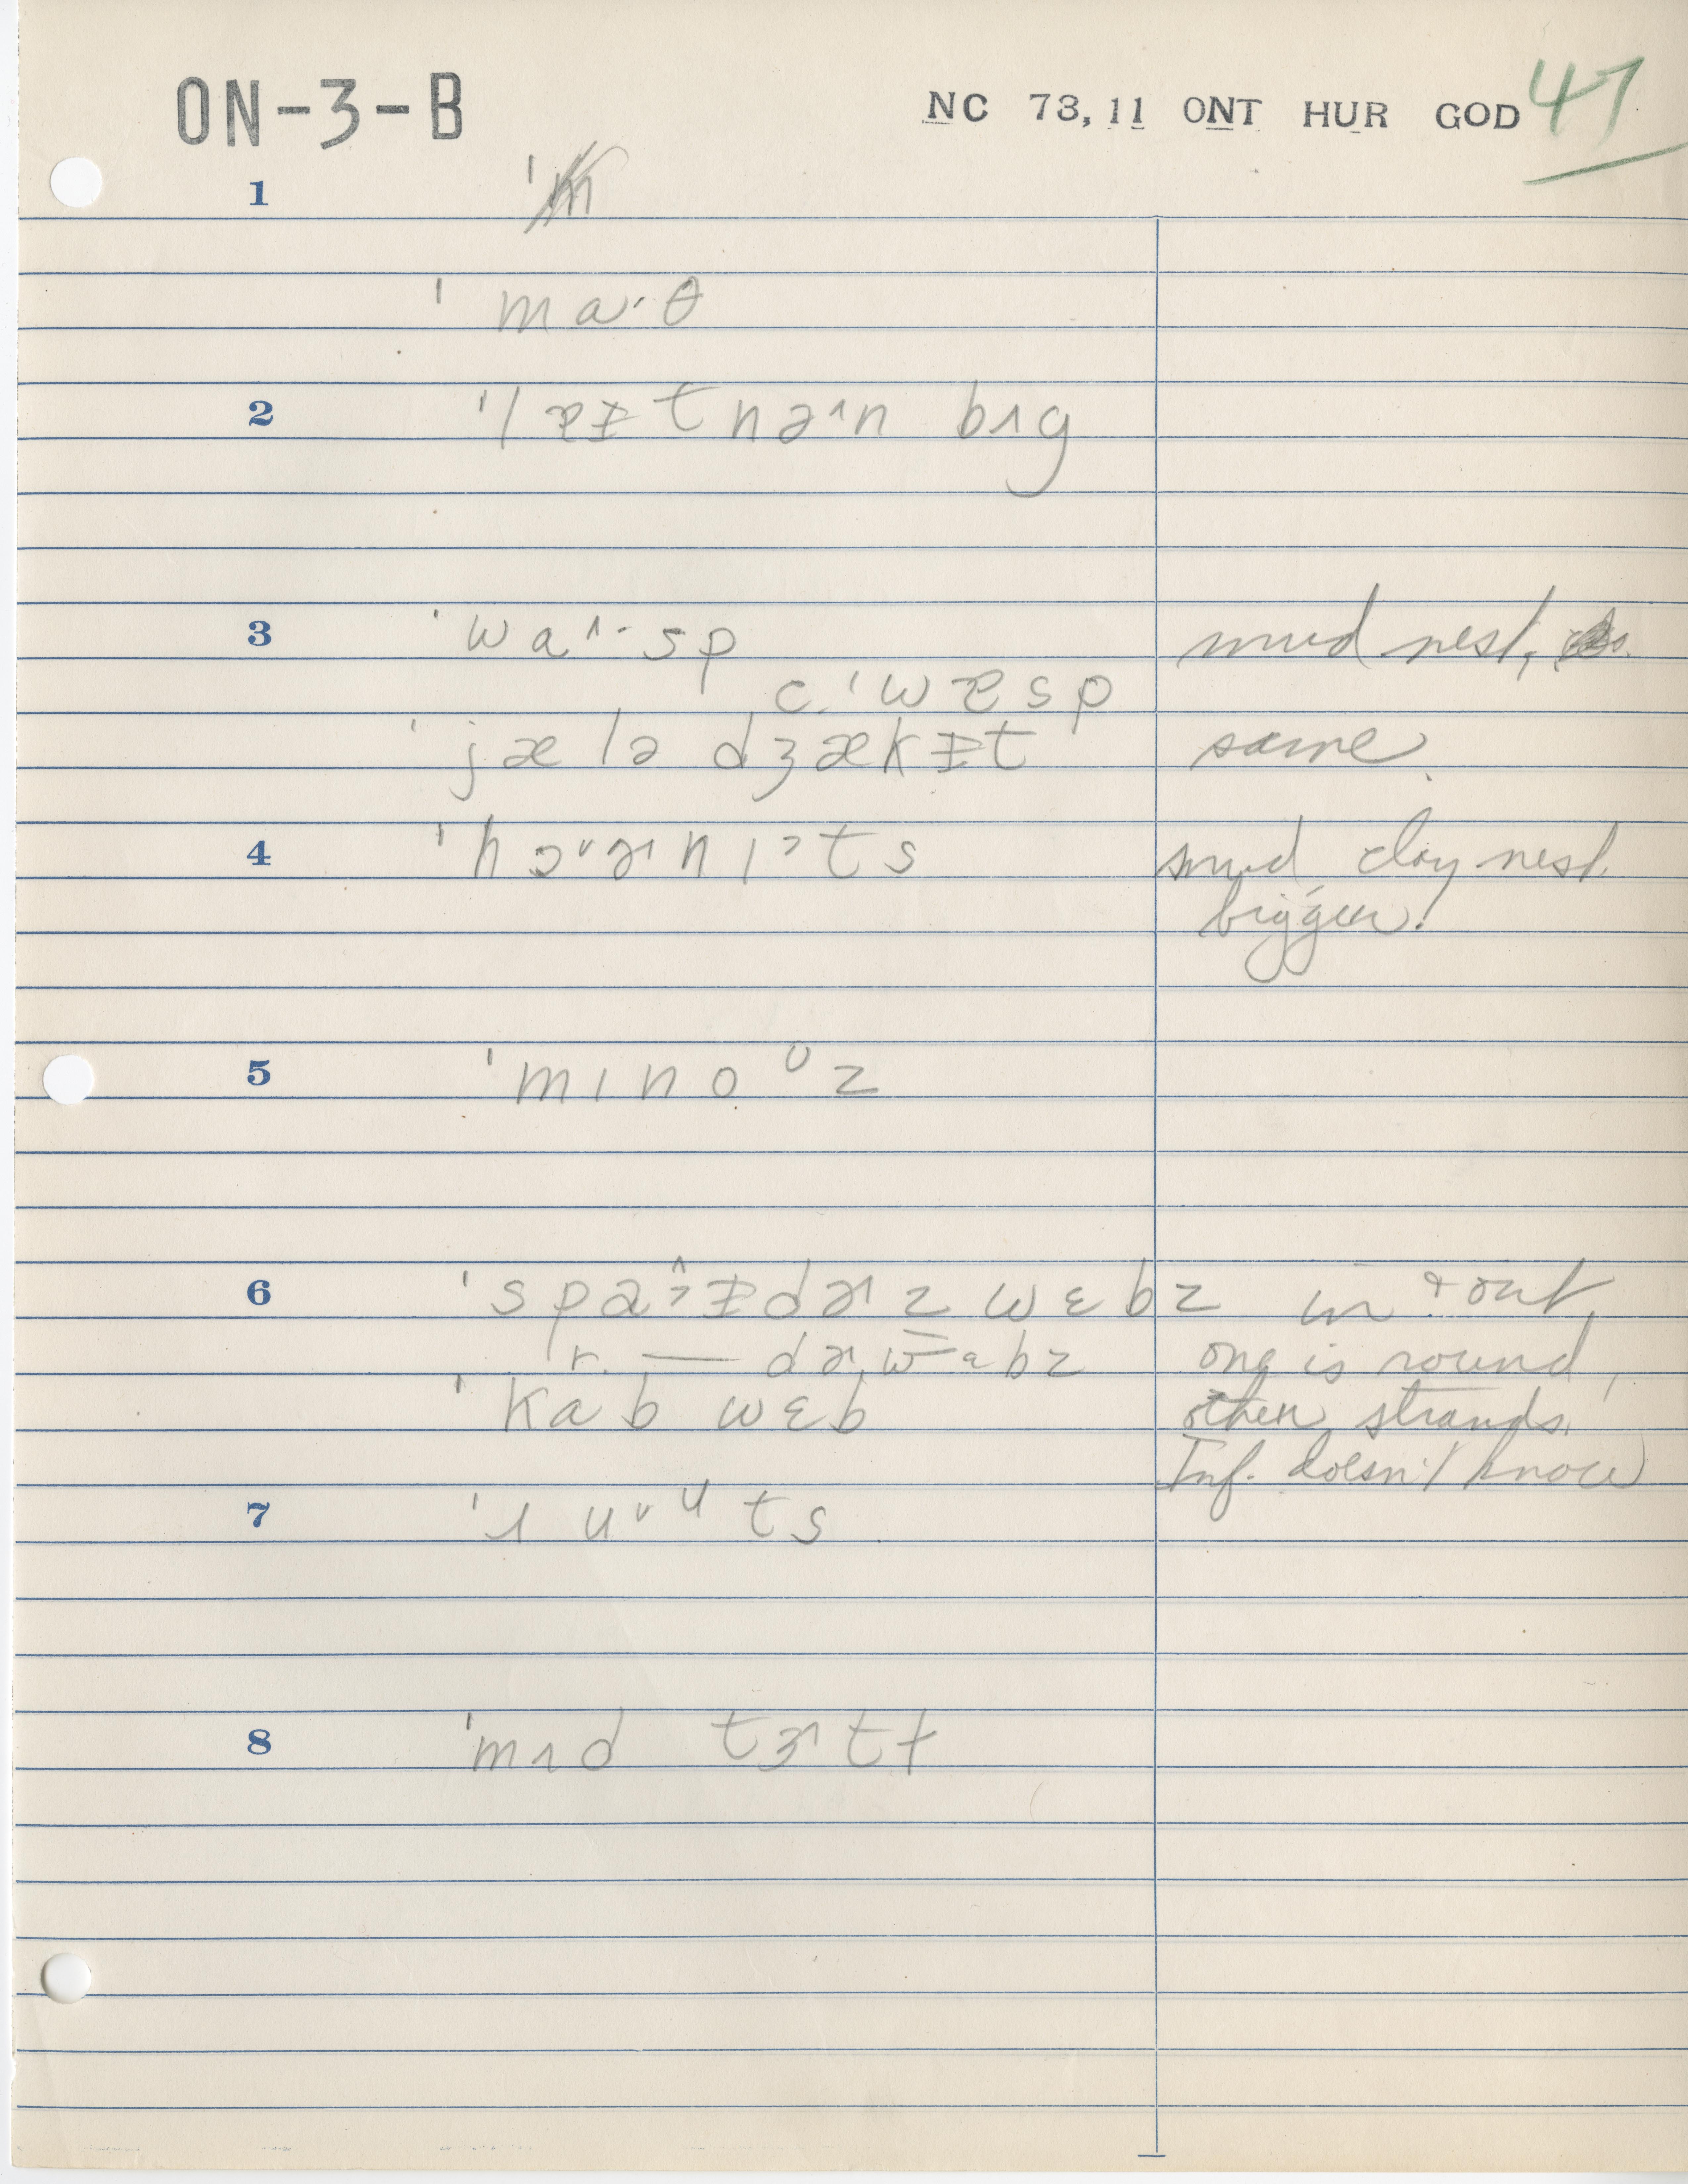 ON-3-B
NC 73,11 ONT HUR GOD 47
1
ˈma·θ
2 ˈlaɪtnɚn bɪg
3 ˈwa˄·sp mud nest,
c. ˈwæsp
ˈjælə dʒækɪt same.
4 ˈhɔ˅ɚnɪ˃ts mud, clay nest. bigger.
5 ˈmɪnoᶷz
6 ˈspaɪdɚz wɛbz in & out,
r. — dɚ wɛbz one is round,
ˈkab wɛb other strands.
Inf. doesn't know
7
8 ˈmɪd tɝtɫ